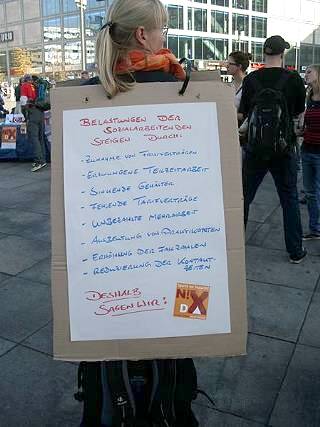 BELASTUNGEN DER
SOZIALARBEITENDEN
STEIGEN DURCH:
- ZUNAHME VON
- ERZWUNGENE TEILZEITARBEIT
- SINKENDE GEHÄLTER
- FEHLENDE TARIFVERTRÄGE
- UNBEZAHLTE MEHRARBEIT
- AUSBEUTUNG VON PRAKTIKANTEN
- ERHÖHUNG DER FALLZAHLEN
- REDUZIERUNG DER KONTAKT-
ZEITEN
DESHALB
SAGEN WIR:
NIX
DA